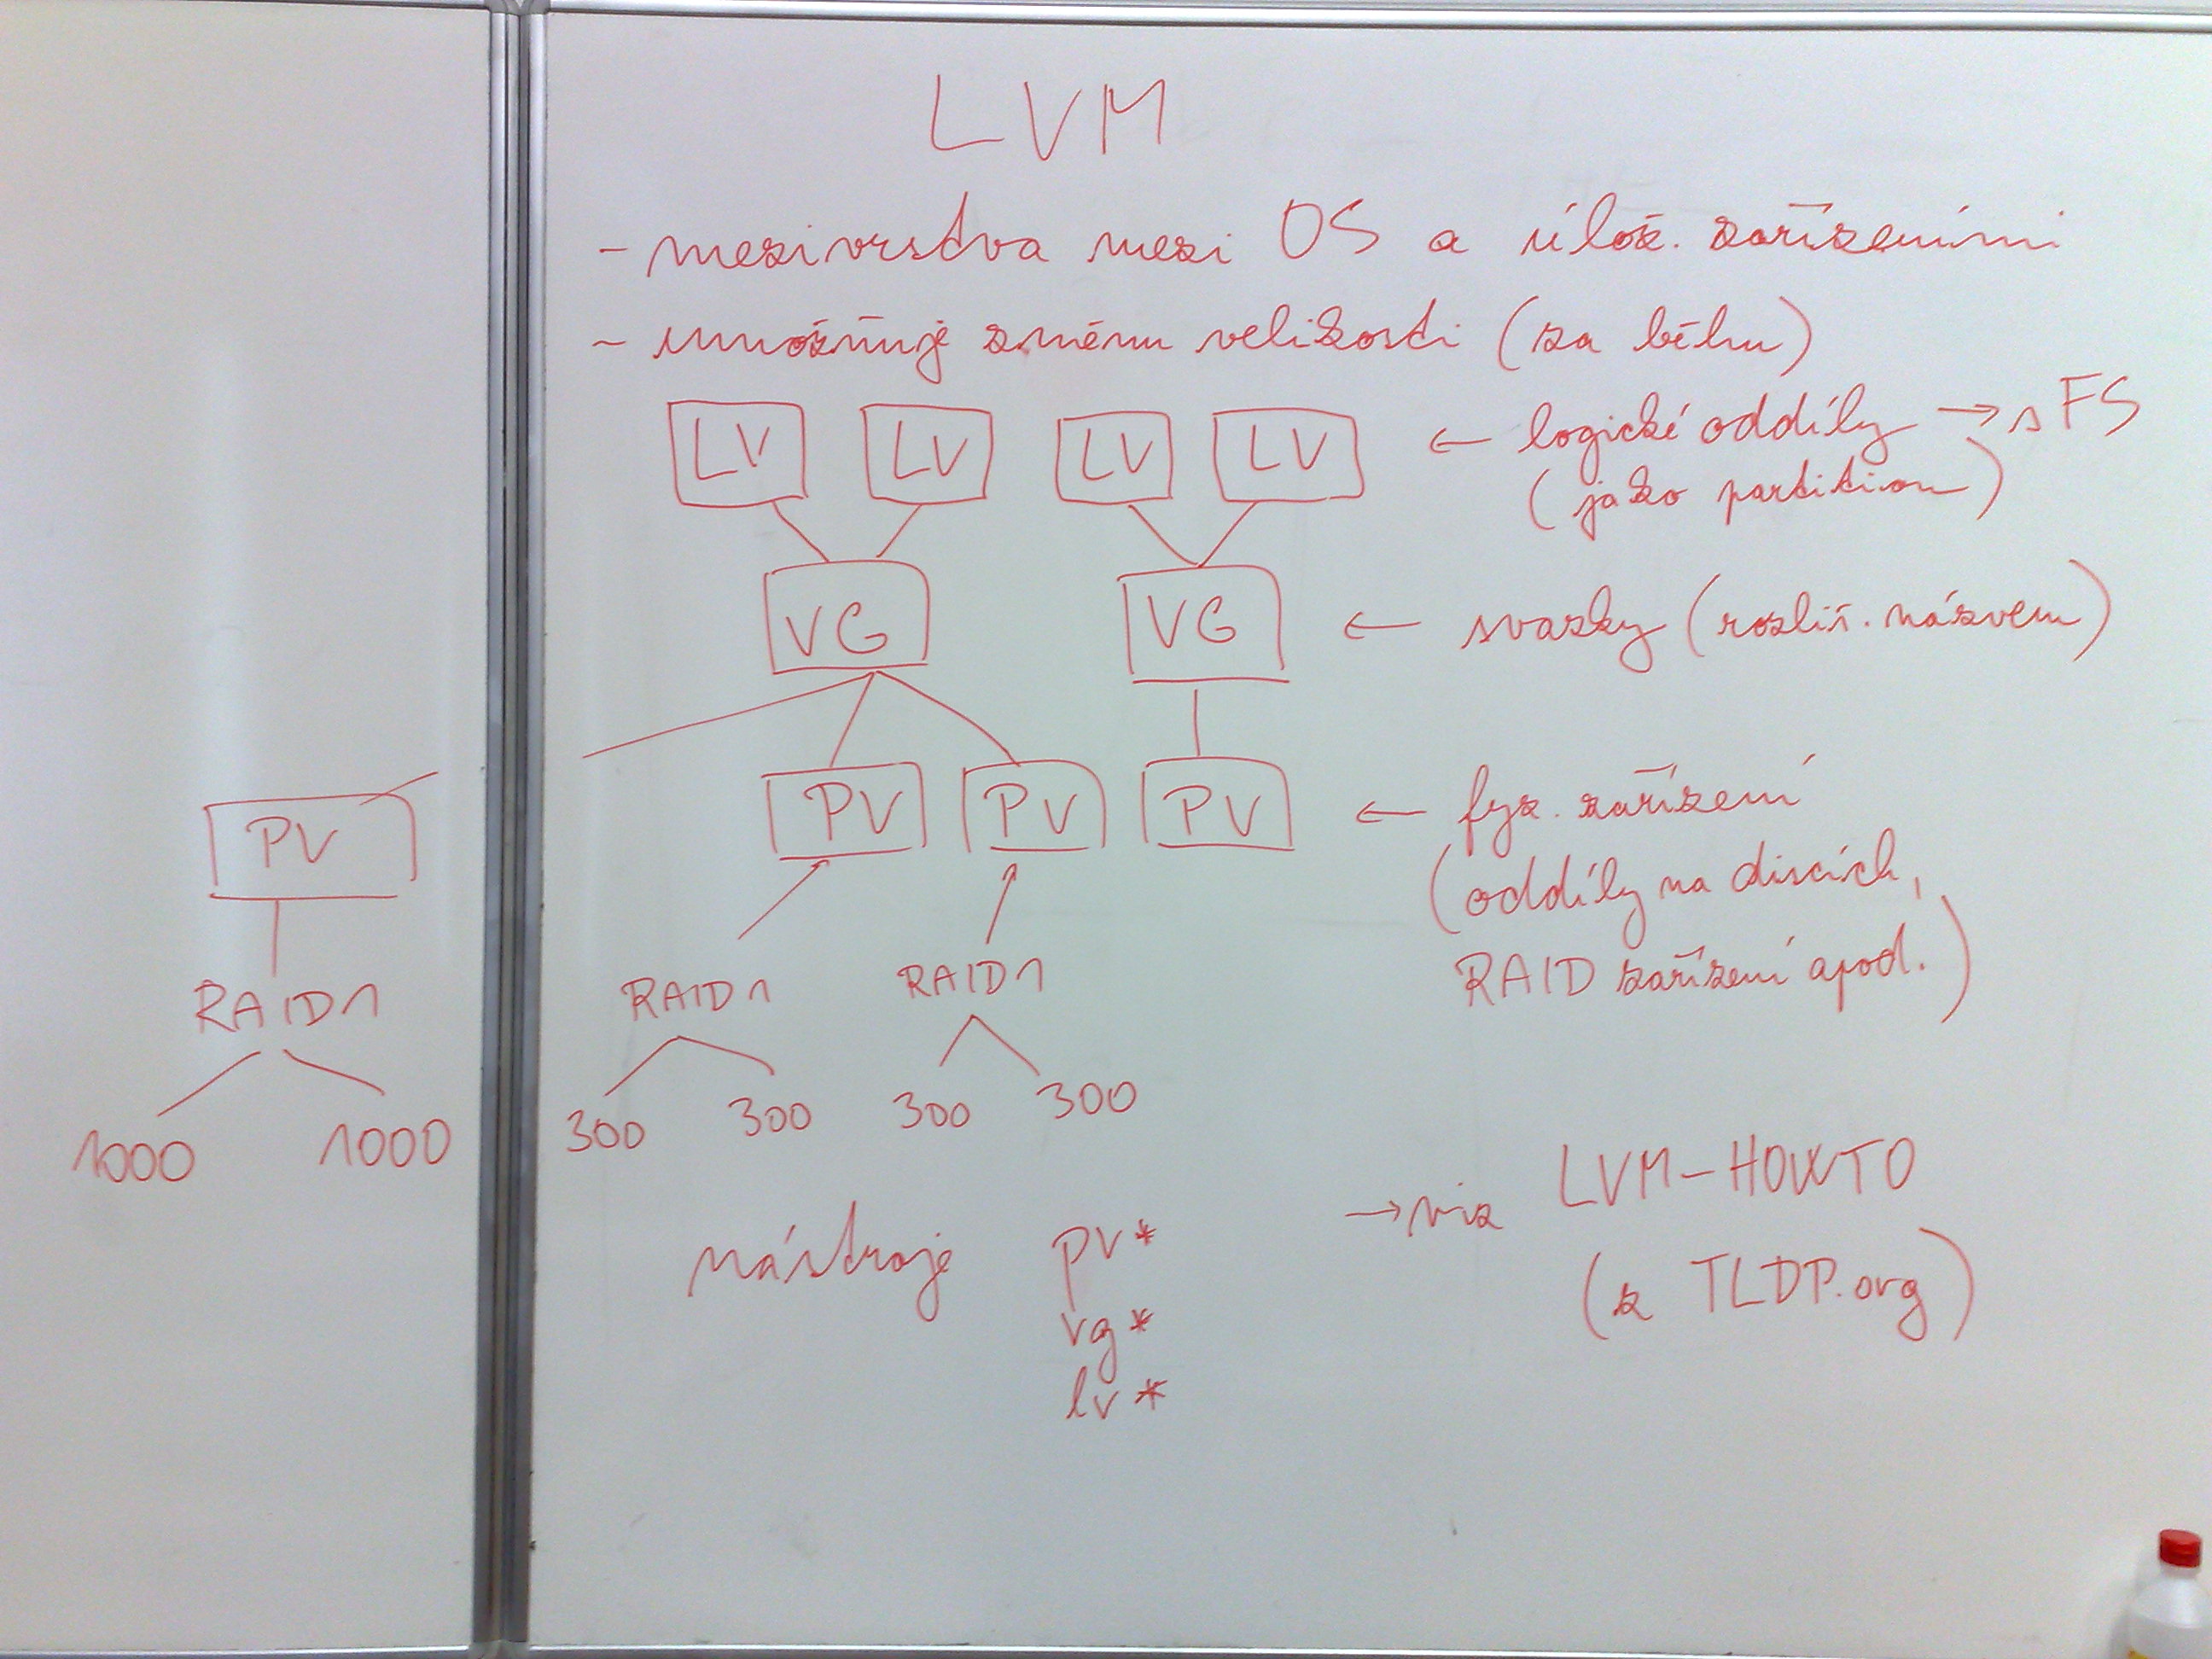 LVM
- mezivrstva mezi OS a úlož. zařízeními
- umožňuje změnu velikosti (za běhu)
LV LV LV LV ← logické oddíly → s FS
(jako partition)
VG VG ← svazky (rozliš. názvem)
PV PV PV PV ← fyz. zařízení
(oddíly na discích,
RAID1 RAID1 RAID1 RAID zařízení apod.)
1000 1000 300 300 300 300
nástroje pv* → viz LVM-HOWTO
vg* (z TLDP.org)
lv*